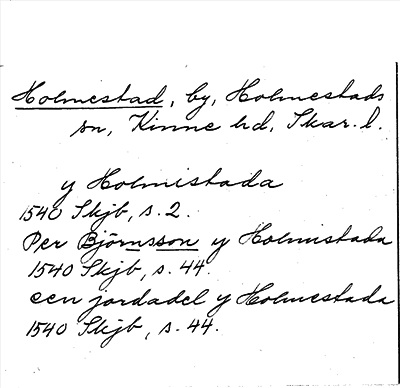 Holmestad, by, Holmestads
sn, Kinne hd, Skar. l.
y Holmistada
1540 Skjb, s. 2.
Per Björnsson y Holmistada
1540 Skjb, s. 44.
een jordadel y Holmestada
1540 Skjb, s. 44.